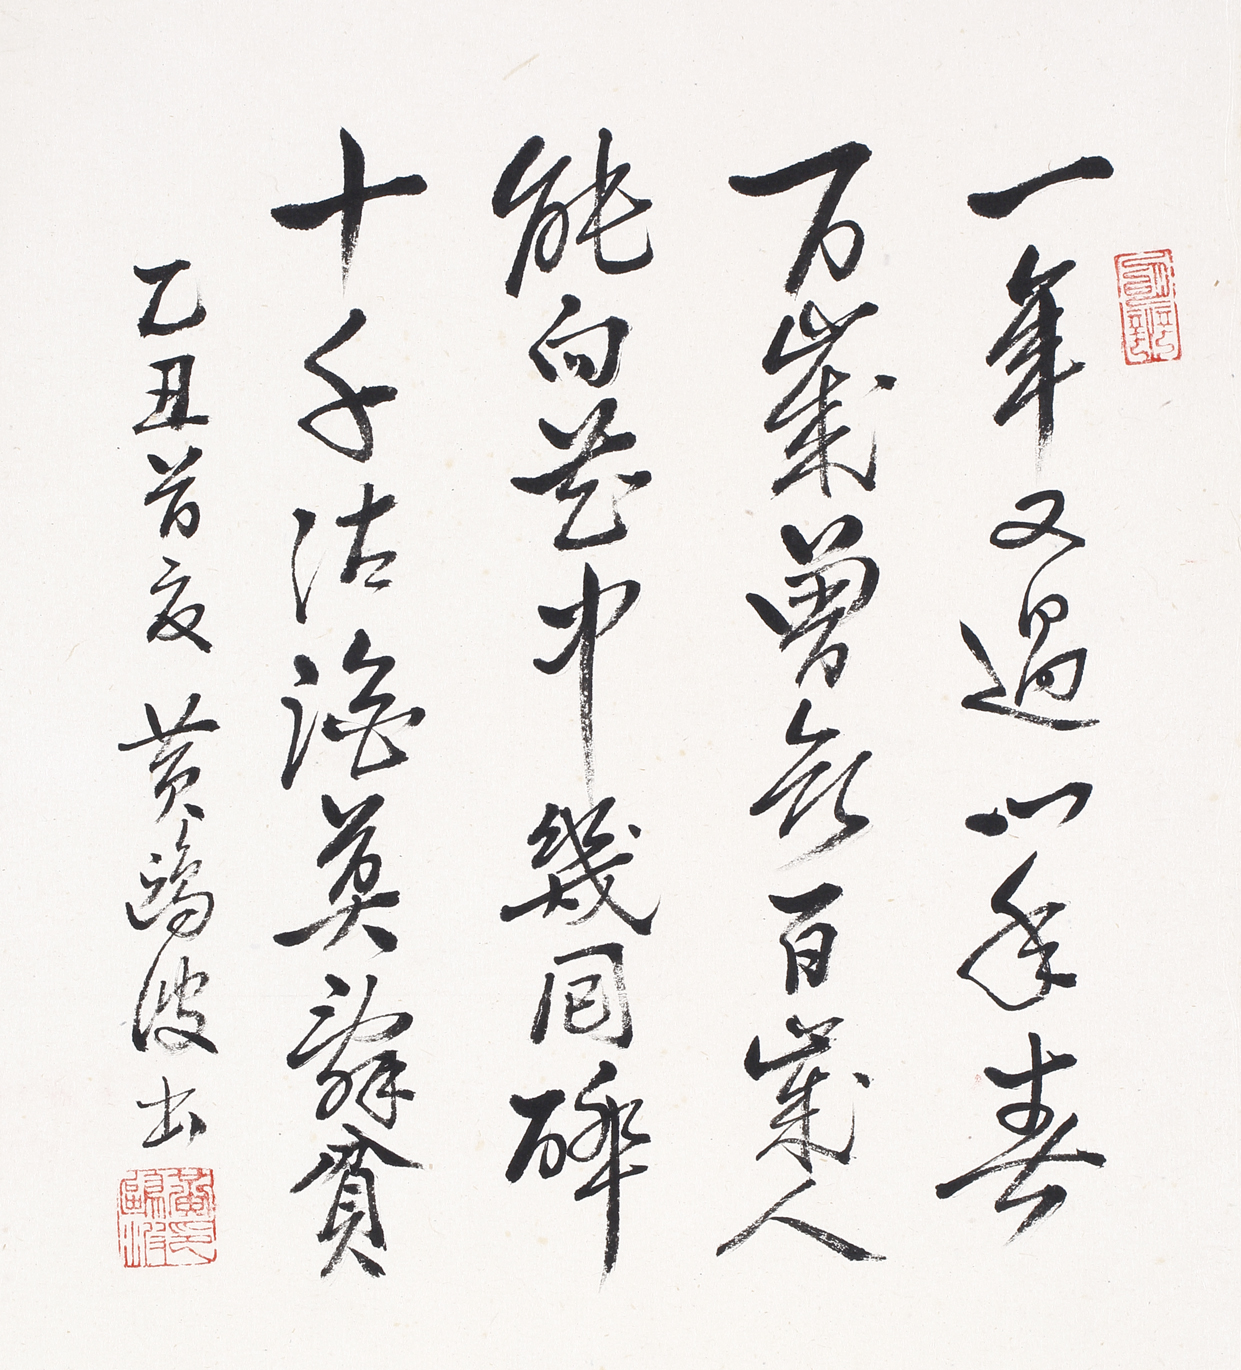 一年又過一年春
百歲曾無百歲人
能向花中幾回醉
十千沽酒莫辭貧
乙丑首夏 黃鷗波書
黃鷗波印